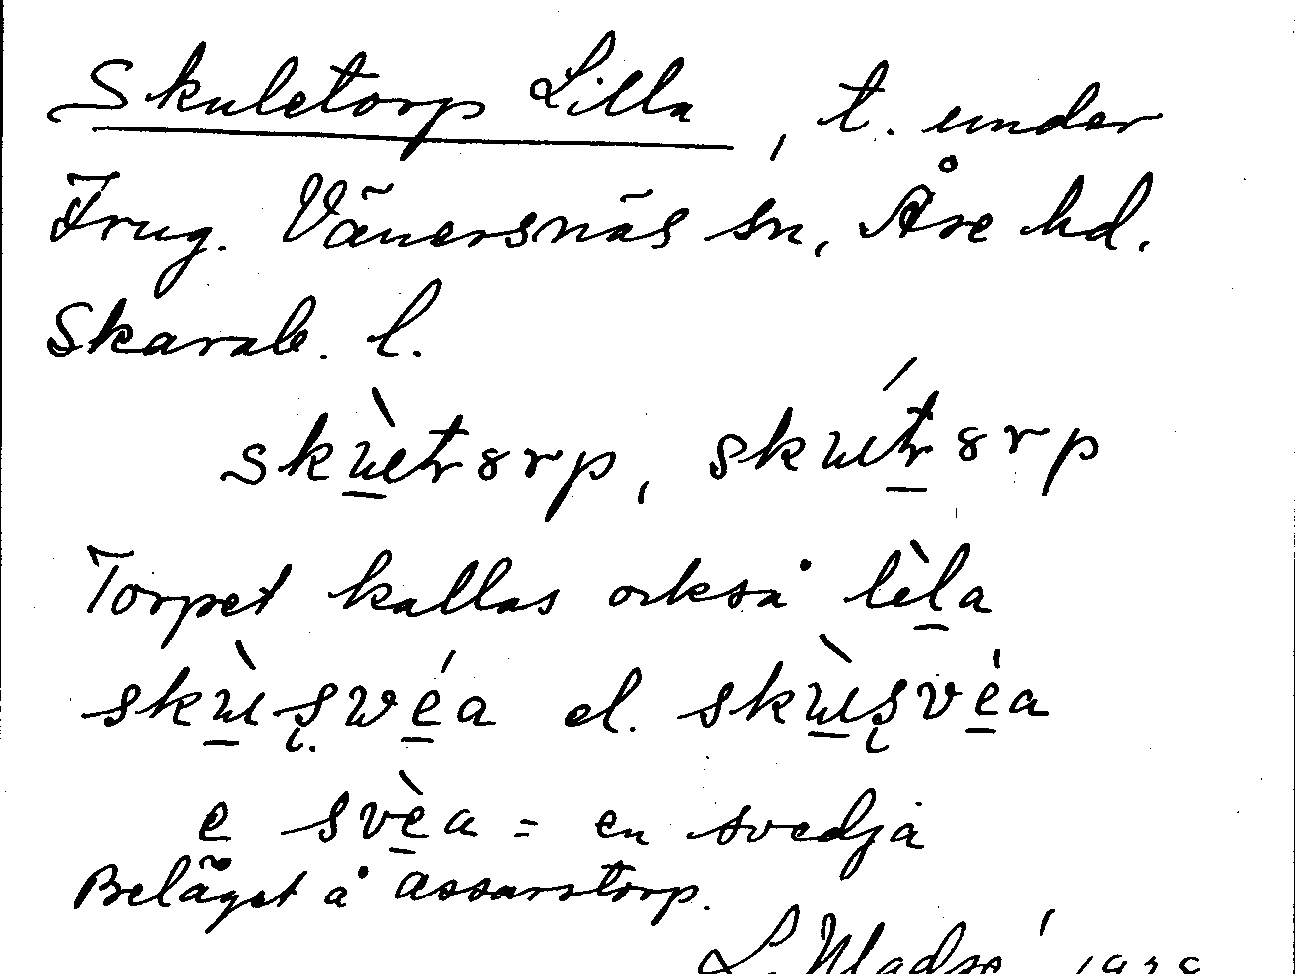 Skuletorp Lilla, t. under
Frug. Vänersnäs sn, Åse hd.
Skarab. l.
skùetorp, skuétorp
Torpet kallas också lèla
skùsvéa el. skùsvéa
e svèa = en svedja
Beläget å Assarstorp.
L.